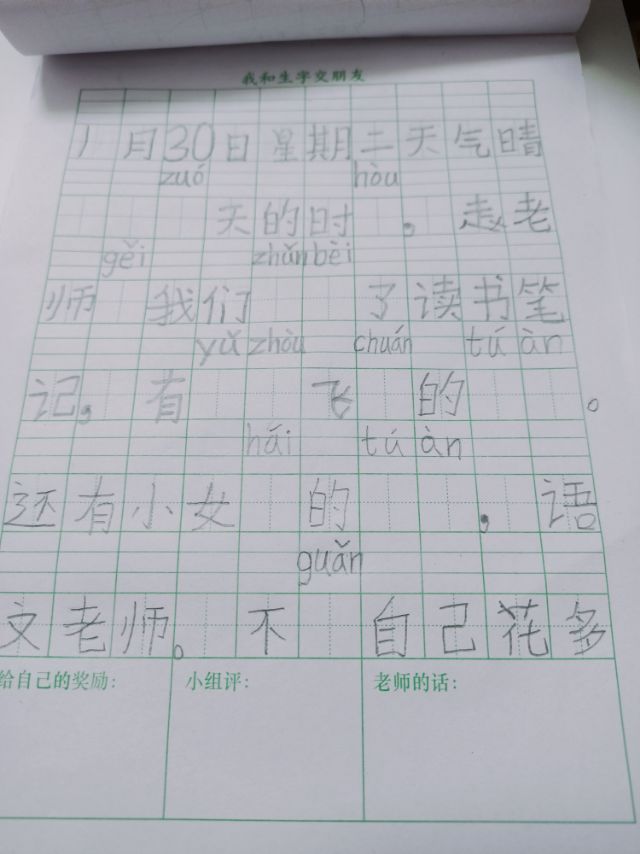 我和生字交朋友
1月30日星期二天气晴
zuó hòu
天的时。赵老
gěi zhǔn bèi
师我们了读书笔
yǔ zhòu chuán tú àn
记，有飞的。
hái tú àn
还有小女的，语
guǎn
文老师。不自己花多
给自己的奖励：
小组评：
老师的话：